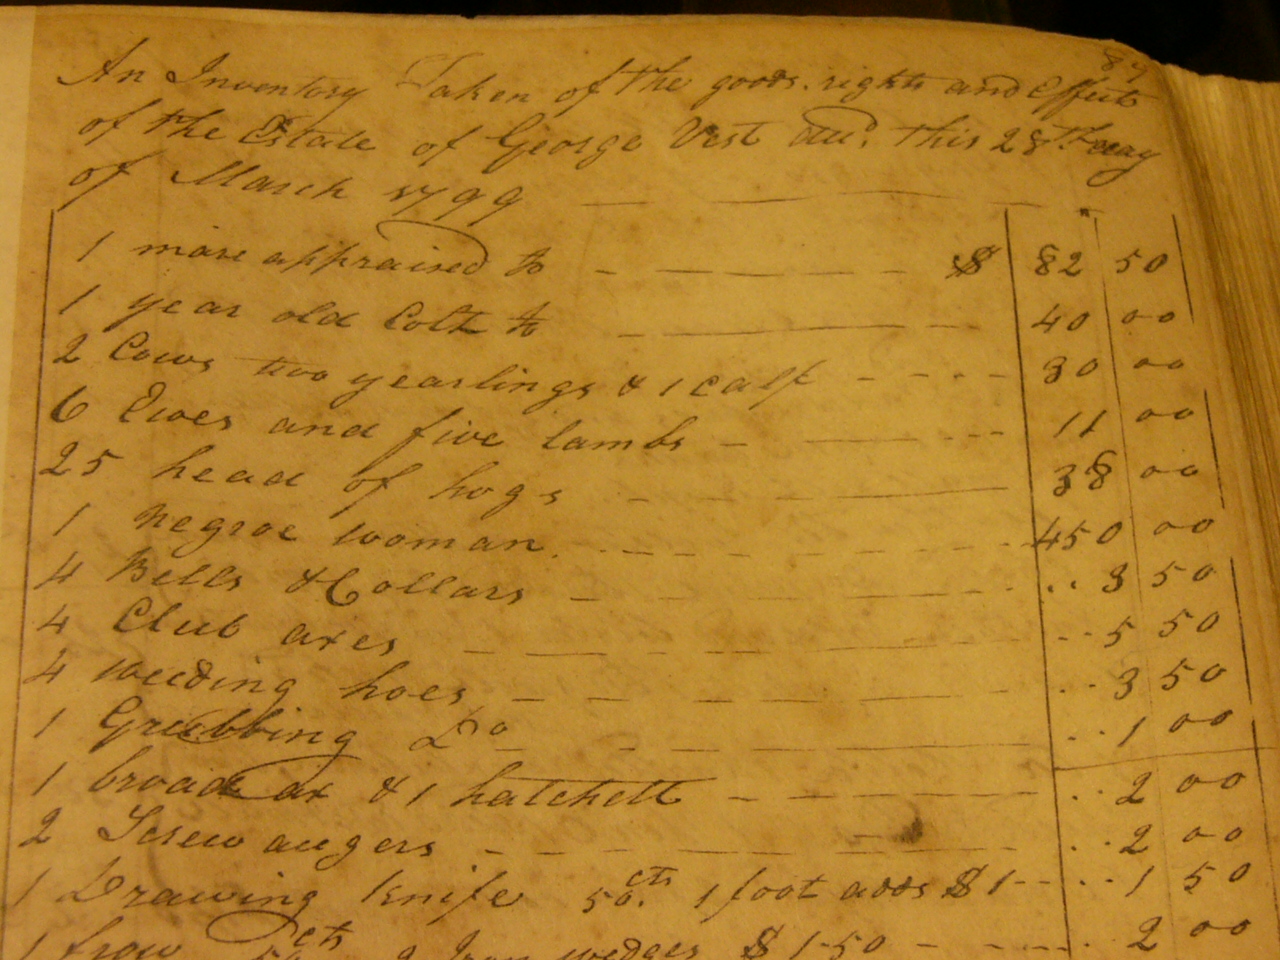 89
An Inventory Taken of the goods. rights and Effects
of the Estate of George Vest decd. this 28th day
of March 1799
1 mare appraised to $ 82 50
1 year old Colt to 40 00
2 Cows two yearlings & 1 calf 30 00
6 Ewes and five lambs 11 00
25 head of hogs 38 00
1 negroe woman. 450 00
4 Bells & Collars 3 50
4 Club axes 5 50
4 weeding hoes 3 50
1 Grubbing Do 1 00
1 broad ax & 1 hatchett 2 00
2 Screw augers 2 00
1 Drawing knife 50 cts. 1 foot adds $1 1 50
1 frow 50 cts 2 Iron wedges $1-50 2 00